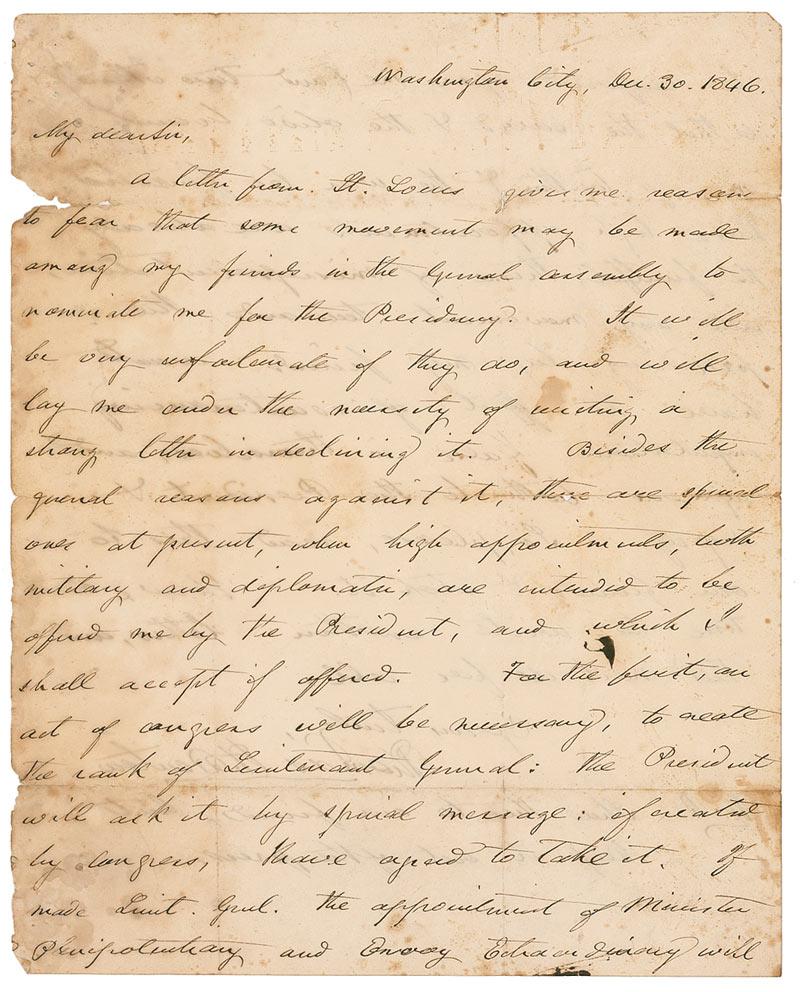 Washington City, Dec. 30. 1846.
My dear Sir,
A letter from St. Louis gives me reason
to fear that some movement may be made
among my friends in the General assembly to
nominate me for the Presidency. It will
be very unfortunate if they do, and will
lay me under the necessity of writing a
strong letter in declining it. Besides the
general reasons against it, there are special
ones at present, when high appointments, both
military and diplomatic, are intended to be
offered me by the President, and which I
shall accept if offered. For the first, an
act of congress will be necessary, to create
the rank of Lieutenant General: the President
will ask it by special message: if created
by congress, I have agreed to take it. If
made Lieut. Genl. the appointment of Minister
Plenipotentiary and Envoy Extraordinary will